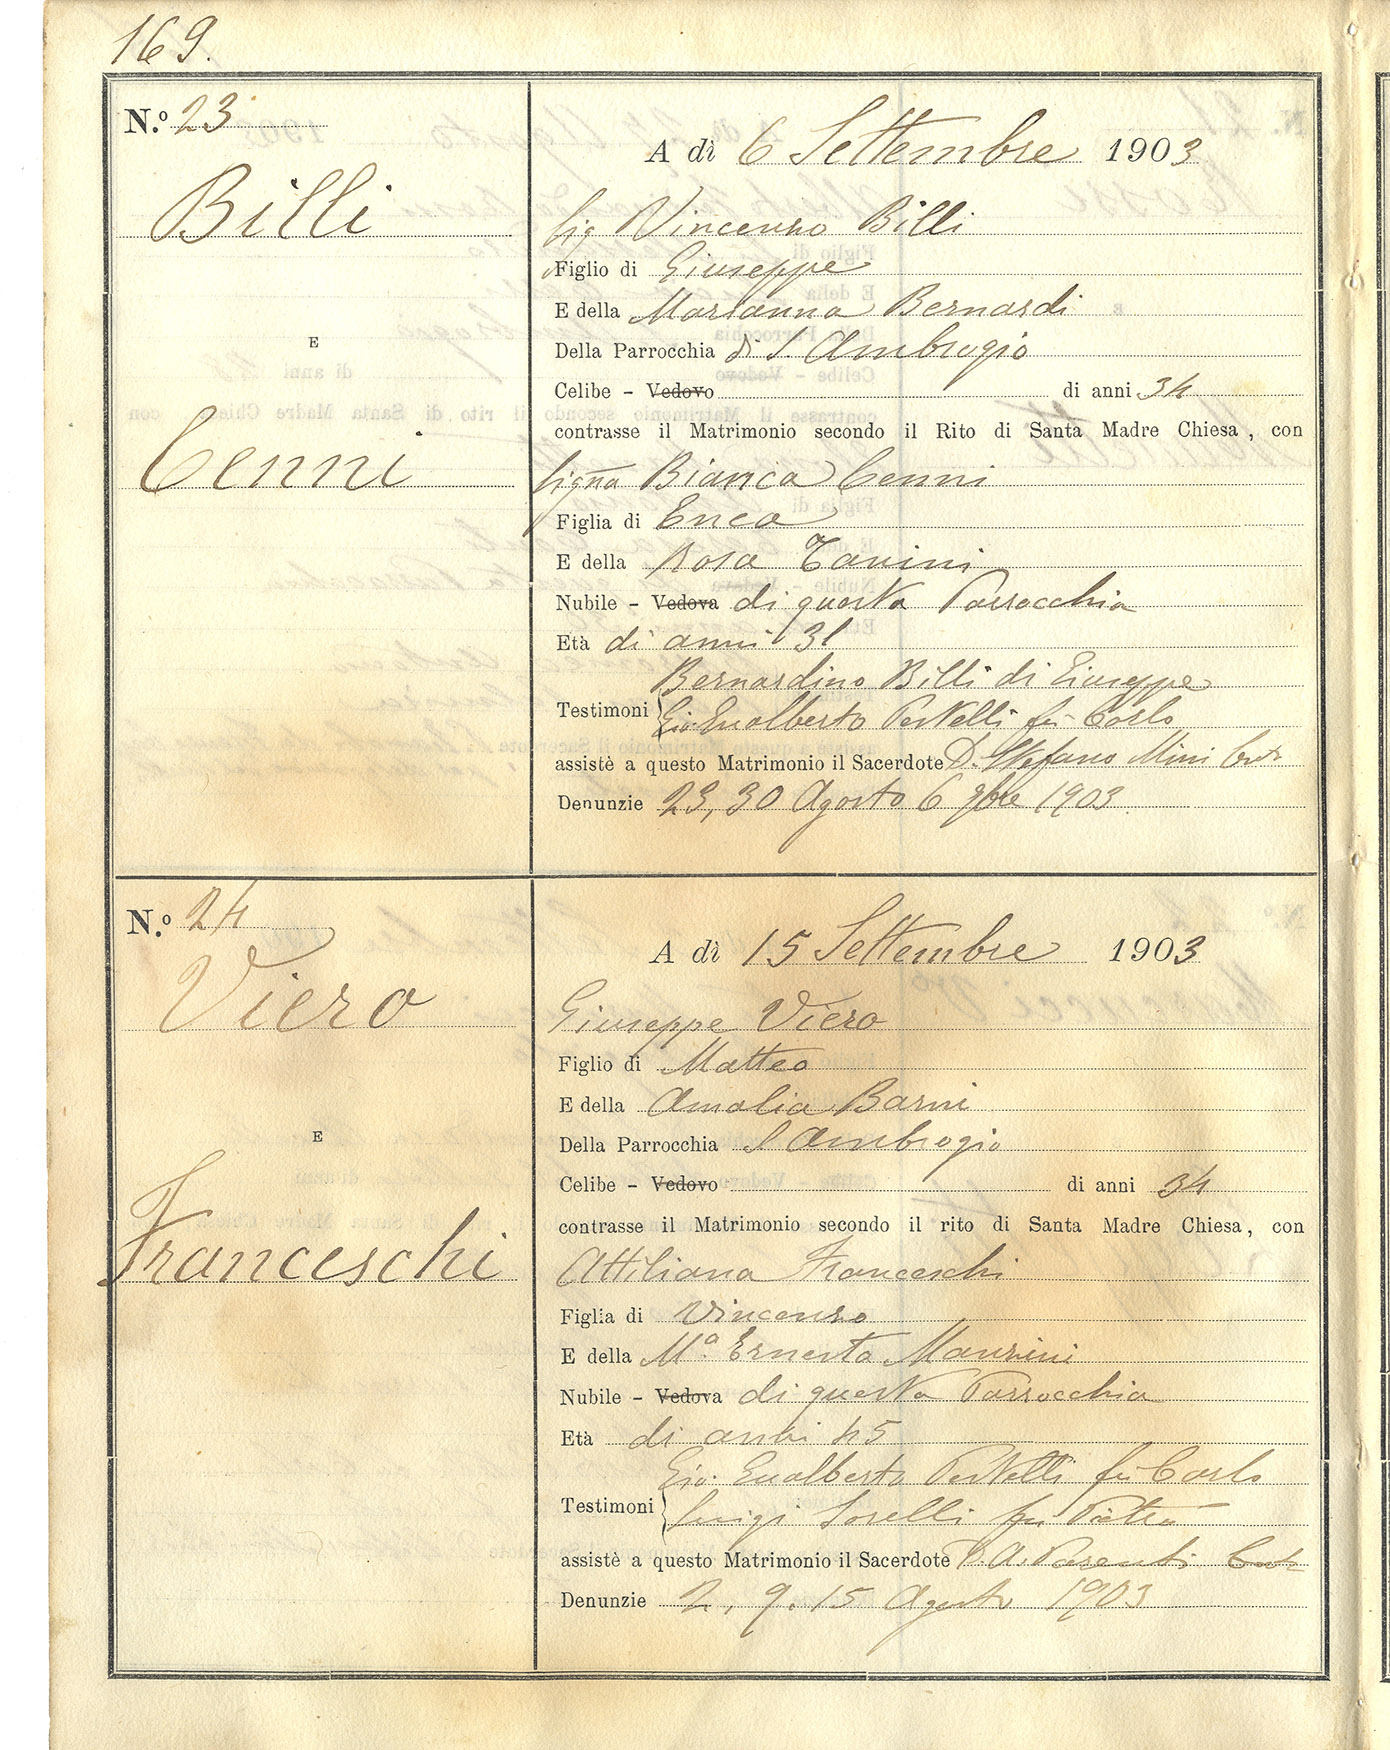 169.
N.º 23
Billi
E
Cenni
A dì 6 Settembre 1903
Sig Vincenzo Billi
Figlio di Giuseppe
E della Marianna Bernardi
Della Parrocchia di S. Ambrogio
Celibe – Vedovo di anni 34
contrasse il Matrimonio secondo il Rito di Santa Madre Chiesa, con
Sigña Bianca Cenni
Figlia di Enea
E della Rosa Tanini
Nubile – Vedova di questa Parrocchia
Età di anni 31
Bernardino Billi di Giuseppe
Testimoni
Gio: Gualberto Pestelli fu Carlo
assistè a questo Matrimonio il Sacerdote D. Stefano Mini
Denunzie 23, 30 Agosto 6 9bre 1903
N.º 24
Viero
E
Franceschi
A dì 15 Settembre 1903
Giuseppe Viero
Figlio di Matteo
E della Amalia Barni
Della Parrocchia S Ambrogio
Celibe – Vedovo di anni 34
contrasse il Matrimonio secondo il rito di Santa Madre Chiesa, con
Attiliana Franceschi
Figlia di Vincenzo
E della Mª. Ernesta Maurini
Nubile – Vedova di questa Parrocchia
Età di anni 45
Gio: Gualberto Pestelli fu Carlo
Testimoni
Luigi Sorelli fu
assistè a questo Matrimonio il Sacerdote D. A. Parenti
Denunzie 2, 9. 15 Agosto 1903